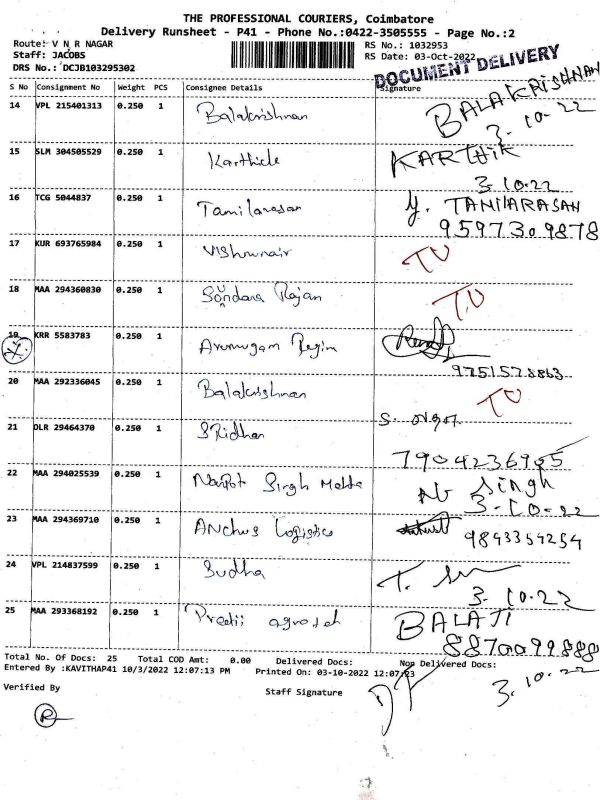 THE PROFESSIONAL COURIERS, Coimbatore
Delivery Runsheet - P41 - Phone No.:0422-3505555 - Page No.:2
Route: V N R NAGAR RS No.: 1032953
Staff: JACOBS RS Date: 03-Oct-2022
DRS No.: DCJB103295302 DOCUMENT DELIVERY
S No Consignment No Weight PCS Consignee Details Signature
14 VPL 215401313 0.250 1 Balakrishnan BALAKRISHNAN
3-10-22
15 SLM 304505529 0.250 1 Karthick KARTHIK
3-10-22
16 TCG 5044837 0.250 1 Tamilarasan Y. TAMILARASAN
9597309878
17 KUR 693765984 0.250 1 Vishwnair TU
18 MAA 294360830 0.250 1 Sondara Rajan T.U
19 KRR 5583783 0.250 1 Arumugam Regin
9751578863
20 MAA 292336045 0.250 1 Balakrishnan TU
21 DLR 29464370 0.250 1 SRidhar S.
7904236905
22 MAA 294025539 0.250 1 Narpot Singh Mehta Singh
3-10-22
23 MAA 294369710 0.250 1 ANchus Logistics
9843354254
24 VPL 214837599 0.250 1 Sudha T.
3-10-22
25 MAA 293368192 0.250 1 Preeti agrotech BALAJI
8870099888
Total No. Of Docs: 25 Total COD Amt: 0.00 Delivered Docs: Non Delivered Docs:
Entered By :KAVITHAP41 10/3/2022 12:07:13 PM Printed On: 03-10-2022 12:07:23
3.10.22
Verified By Staff Signature
R